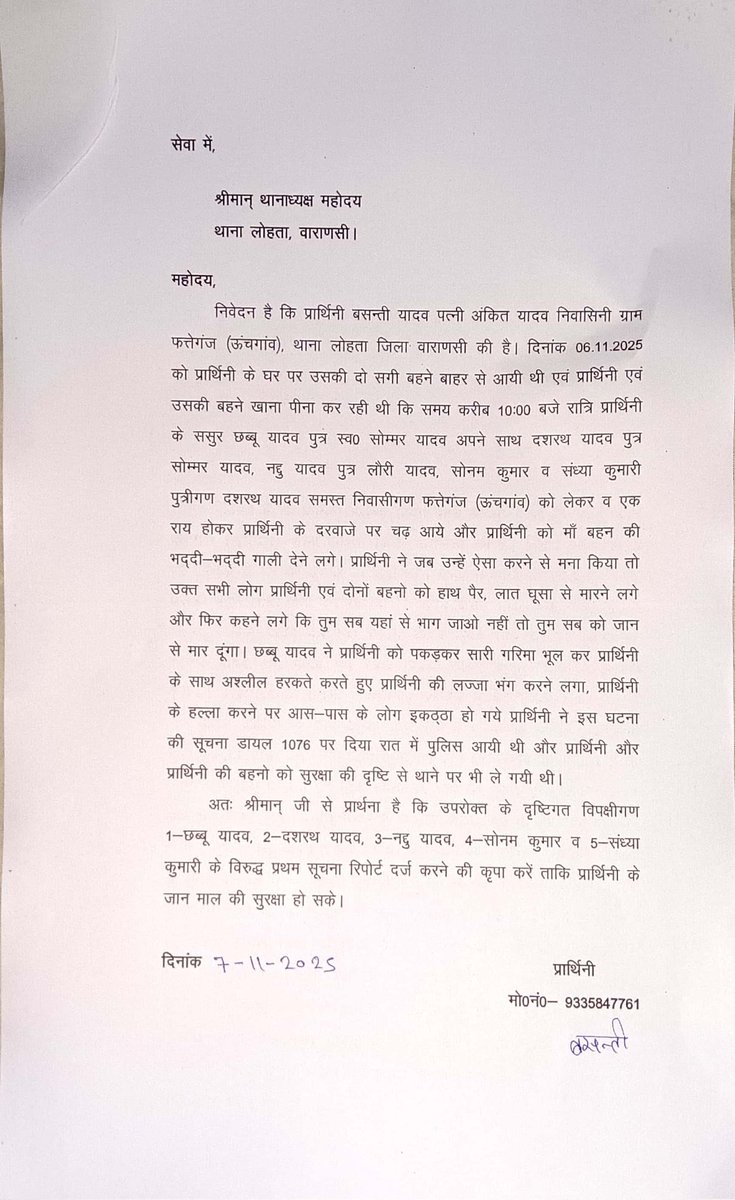 सेवा में,
श्रीमान् थानाध्यक्ष महोदय
थाना लोहता, वाराणसी।
महोदय,
निवेदन है कि प्रार्थिनी बसन्ती यादव पत्नी अंकित यादव निवासिनी ग्राम
फत्तेगंज (ऊंचगांव), थाना लोहता जिला वाराणसी की है। दिनांक 06.11.2025
को प्रार्थिनी के घर पर उसकी दो सगी बहने बाहर से आयी थी एवं प्रार्थिनी एवं
उसकी बहने खाना पीना कर रही थी कि समय करीब 10:00 बजे रात्रि प्रार्थिनी
के ससुर छब्बू यादव पुत्र स्व0 सोम्मर यादव अपने साथ दशरथ यादव पुत्र
सोम्मर यादव, नद्दु यादव पुत्र लौरी यादव, सोनम कुमार व संध्या कुमारी
पुत्रीगण दशरथ यादव समस्त निवासीगण फत्तेगंज (ऊंचगांव) को लेकर व एक
राय होकर प्रार्थिनी के दरवाजे पर चढ़ आये और प्रार्थिनी को माँ बहन की
भद्दी–भद्दी गाली देने लगे। प्रार्थिनी ने जब उन्हें ऐसा करने से मना किया तो
उक्त सभी लोग प्रार्थिनी एवं दोनों बहनो को हाथ पैर, लात घूसा से मारने लगे
और फिर कहने लगे कि तुम सब यहां से भाग जाओ नहीं तो तुम सब को जान
से मार दूंगा। छब्बू यादव ने प्रार्थिनी को पकड़कर सारी गरिमा भूल कर प्रार्थिनी
के साथ अश्लील हरकते करते हुए प्रार्थिनी की लज्जा भंग करने लगा, प्रार्थिनी
के हल्ला करने पर आस–पास के लोग इकठ्ठा हो गये प्रार्थिनी ने इस घटना
की सूचना डायल 1076 पर दिया रात में पुलिस आयी थी और प्रार्थिनी और
प्रार्थिनी की बहनो को सुरक्षा की दृष्टि से थाने पर भी ले गयी थी।
अतः श्रीमान् जी से प्रार्थना है कि उपरोक्त के दृष्टिगत विपक्षीगण
1–छब्बू यादव, 2–दशरथ यादव, 3–नद्दु यादव, 4–सोनम कुमार व 5–संध्या
कुमारी के विरुद्ध प्रथम सूचना रिपोर्ट दर्ज करने की कृपा करें ताकि प्रार्थिनी के
जान माल की सुरक्षा हो सके।
दिनांक 7-11-2025
प्रार्थिनी
मो0नं0– 9335847761
बसन्ती